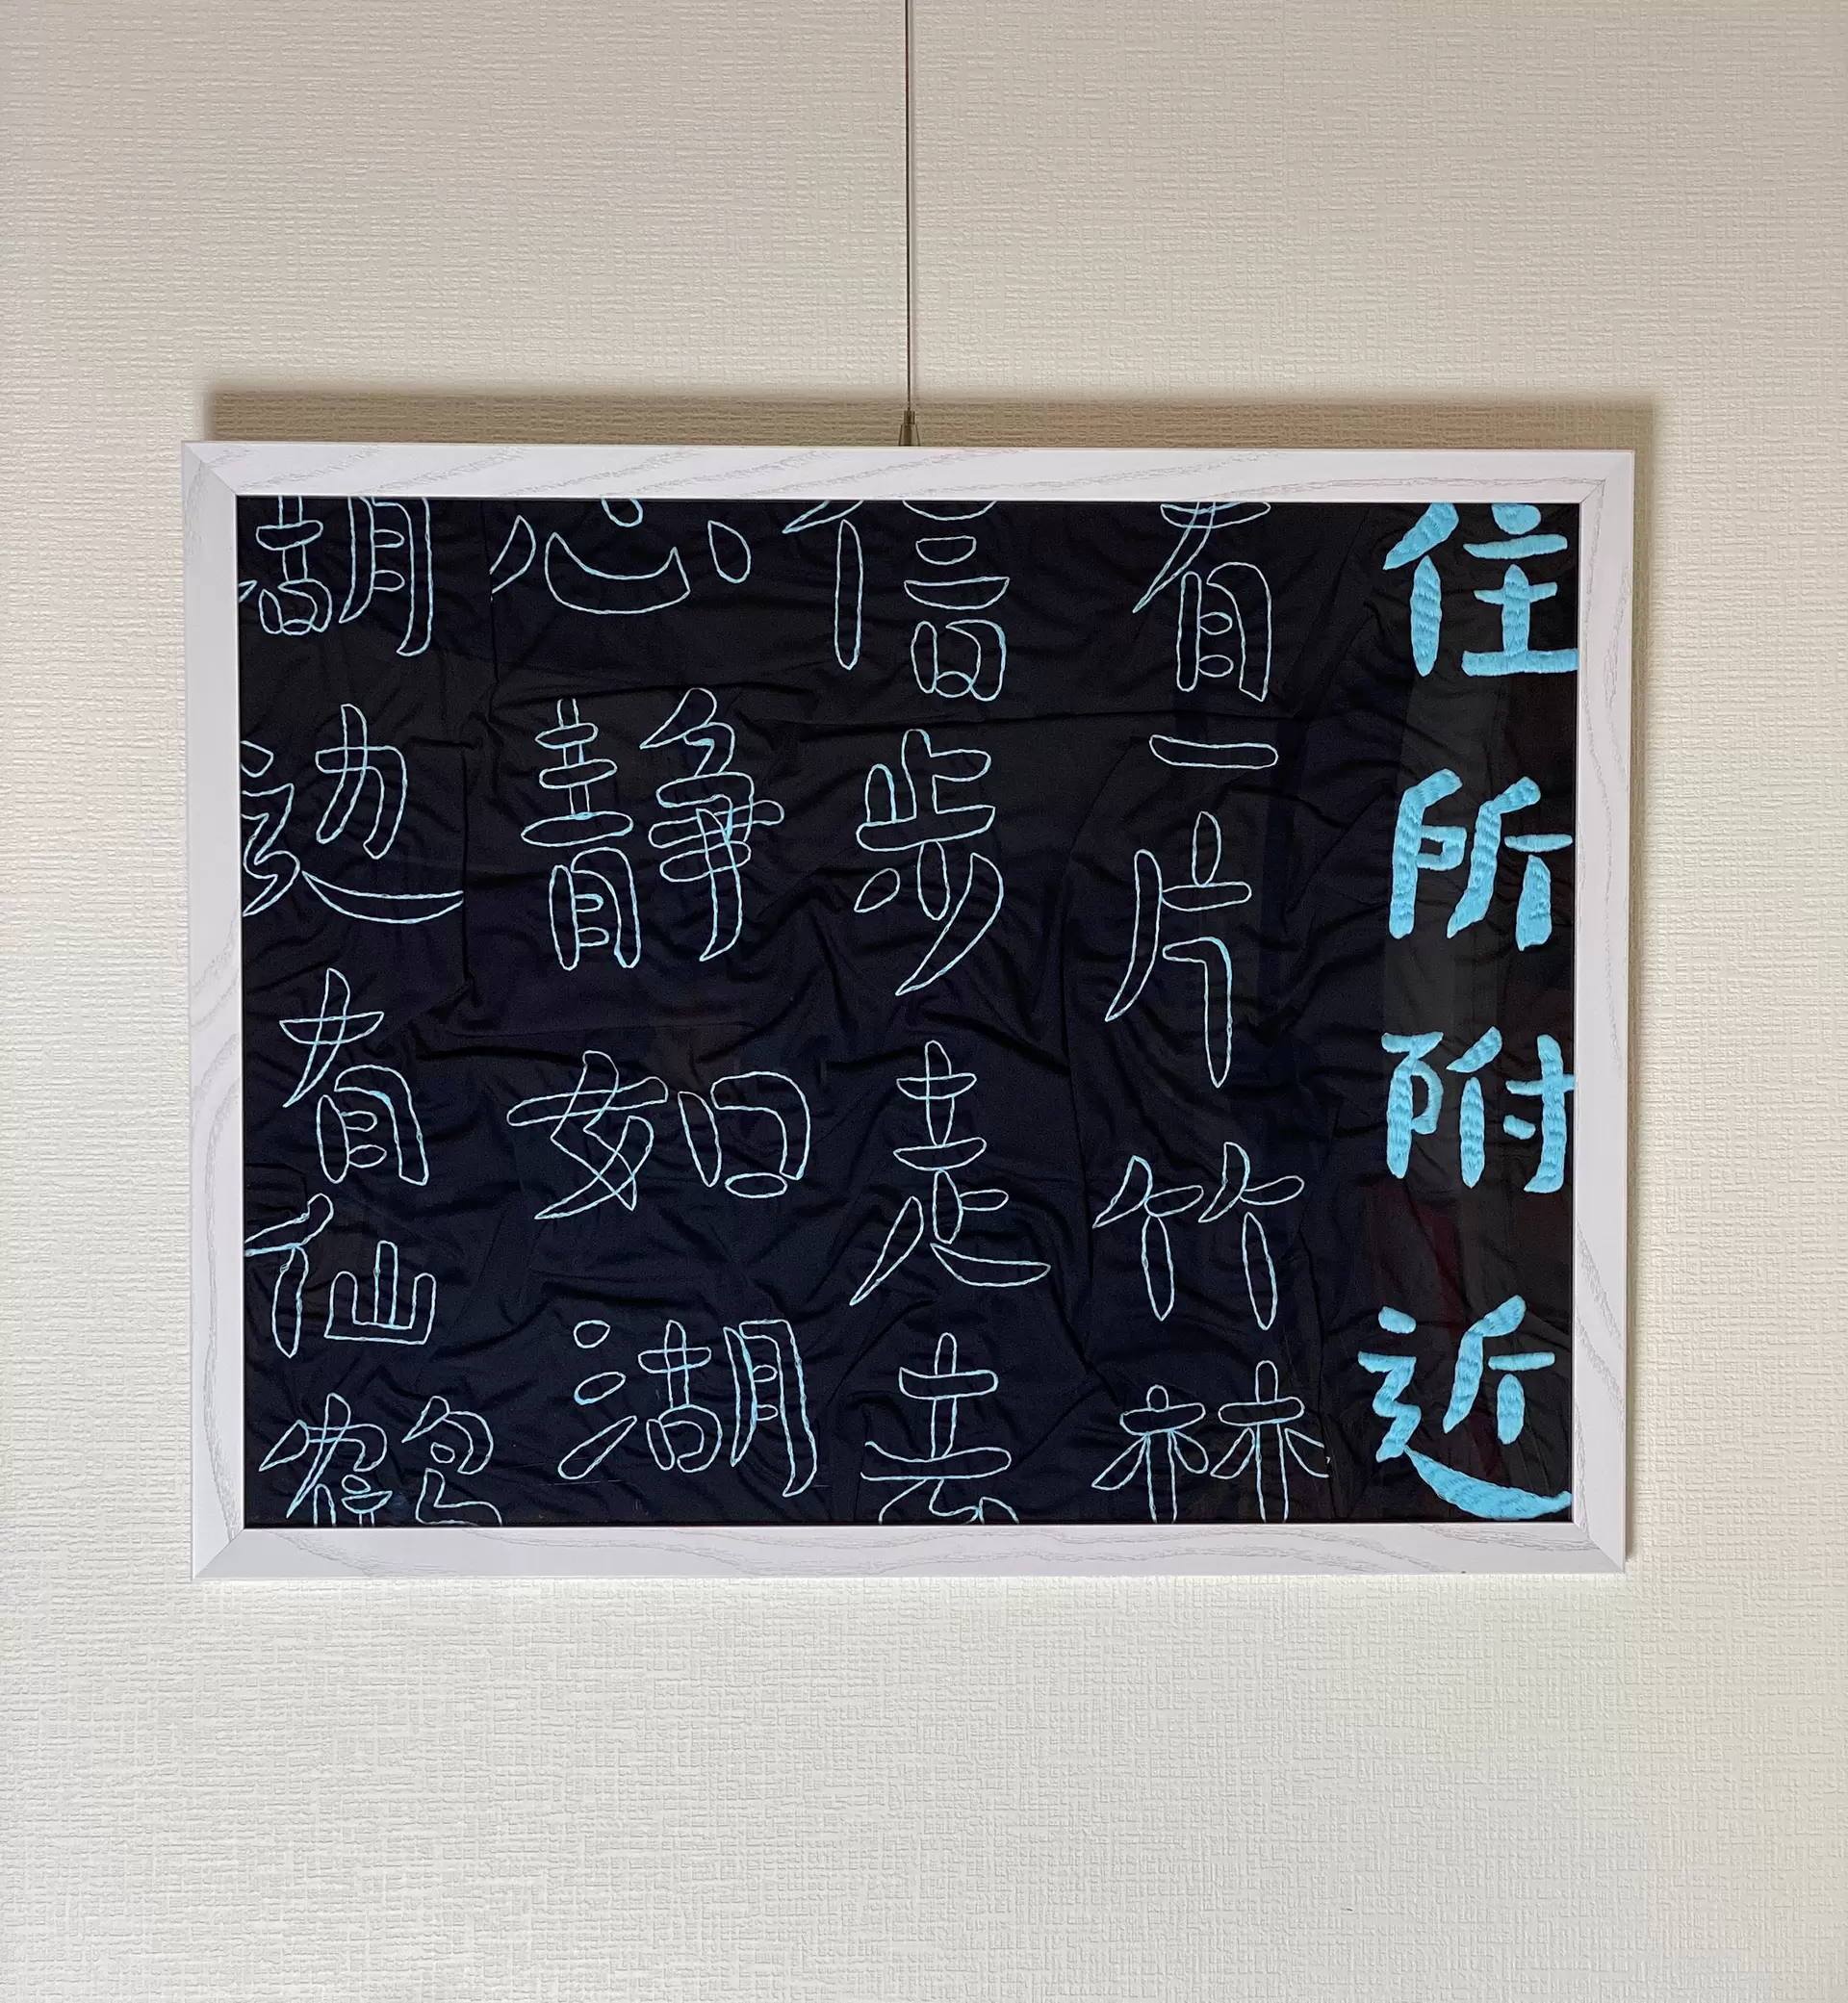 住所附近
有一片竹林
信步走去
心静如湖
湖边有仙鹤